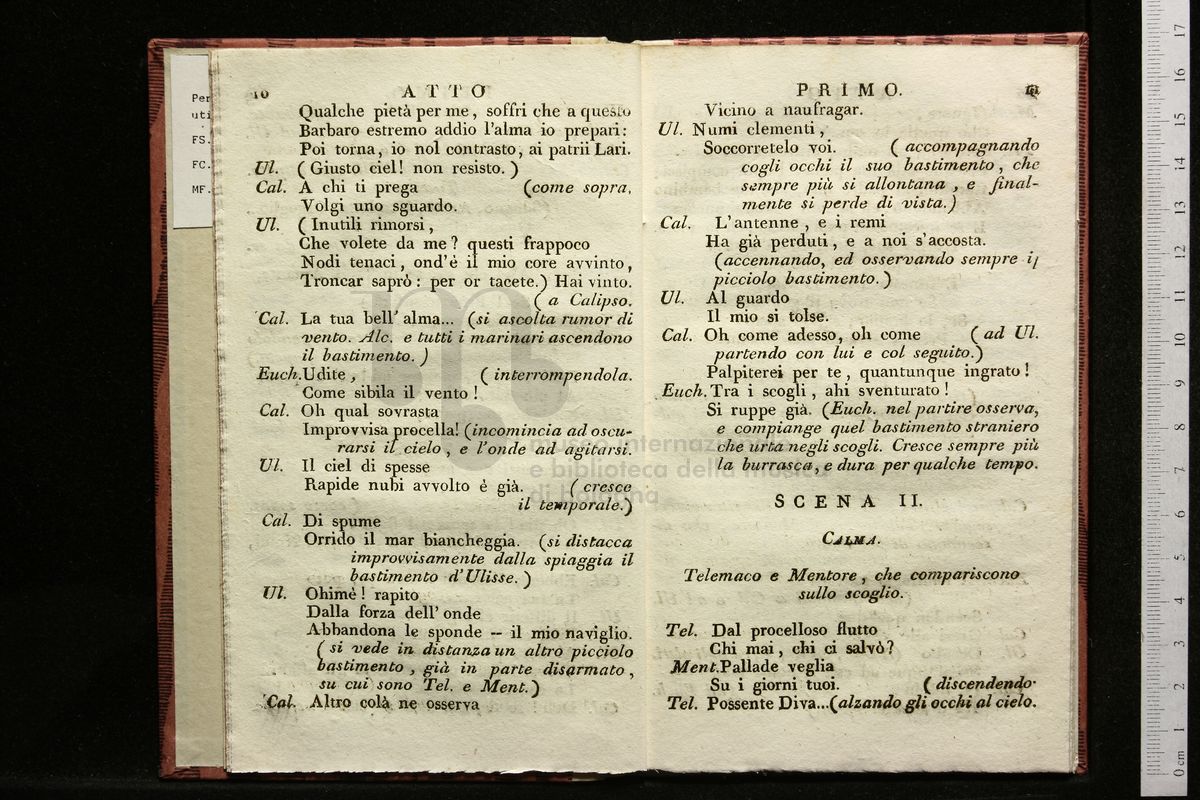 Per
uti
FS.
FC.
MF.
10 ATTO
Qualche pietà per me, soffri che a questo
Barbaro estremo addio l'alma io prepari:
Poi torna, io nol contrasto, ai patrii Lari.
Ul. (Giusto ciel! non resisto.)
Cal. A chi ti prega (come sopra.
Volgi uno sguardo.
Ul. (Inutili rimorsi,
Che volete da me? questi frappoco
Nodi tenaci, ond'è il mio core avvinto,
Troncar saprò: per or tacete.) Hai vinto.
(a Calipso.
Cal. La tua bell'alma... (si ascolta rumor di
vento. Alc. e tutti i marinari ascendono
il bastimento.)
Euch. Udite, (interrompendola.
Come sibila il vento!
Cal. Oh qual sovrasta
Improvvisa procella! (incomincia ad oscu-
rarsi il cielo, e l'onde ad agitarsi.
Ul. Il ciel di spesse
Rapide nubi avvolto è già. (cresce
il temporale.)
Cal. Di spume
Orrido il mar biancheggia. (si distacca
improvvisamente dalla spiaggia il
bastimento d'Ulisse.)
Ul. Ohimè! rapito
Dalla forza dell'onde
Abbandona le sponde -- il mio naviglio.
(si vede in distanza un altro picciolo
bastimento, già in parte disarmato,
su cui sono Tel. e Ment.)
Cal. Altro colà ne osserva
PRIMO. 11
Vicino a naufragar.
Ul. Numi clementi,
Soccorretelo voi. (accompagnando
cogli occhi il suo bastimento, che
sempre più si allontana, e final-
mente si perde di vista.)
Cal. L'antenne, e i remi
Ha già perduti, e a noi s'accosta.
(accennando, ed osservando sempre il
picciolo bastimento.)
Ul. Al guardo
Il mio si tolse.
Cal. Oh come adesso, oh come (ad Ul.
partendo con lui e col seguito.)
Palpiterei per te, quantunque ingrato!
Euch. Tra i scogli, ahi sventurato!
Si ruppe già. (Euch. nel partire osserva,
e compiange quel bastimento straniero
che urta negli scogli. Cresce sempre più
la burrasca, e dura per qualche tempo.
SCENA II.
CALMA.
Telemaco e Mentore, che compariscono
sullo scoglio.
Tel. Dal procelloso flutto
Chi mai, chi ci salvò?
Ment. Pallade veglia
Su i giorni tuoi. (discendendo.
Tel. Possente Diva...(alzando gli occhi al cielo.
museo internazionale
e biblioteca della musica
di bologna
0 cm 1 2 3 4 5 6 7 8 9 10 11 12 13 14 15 16 17